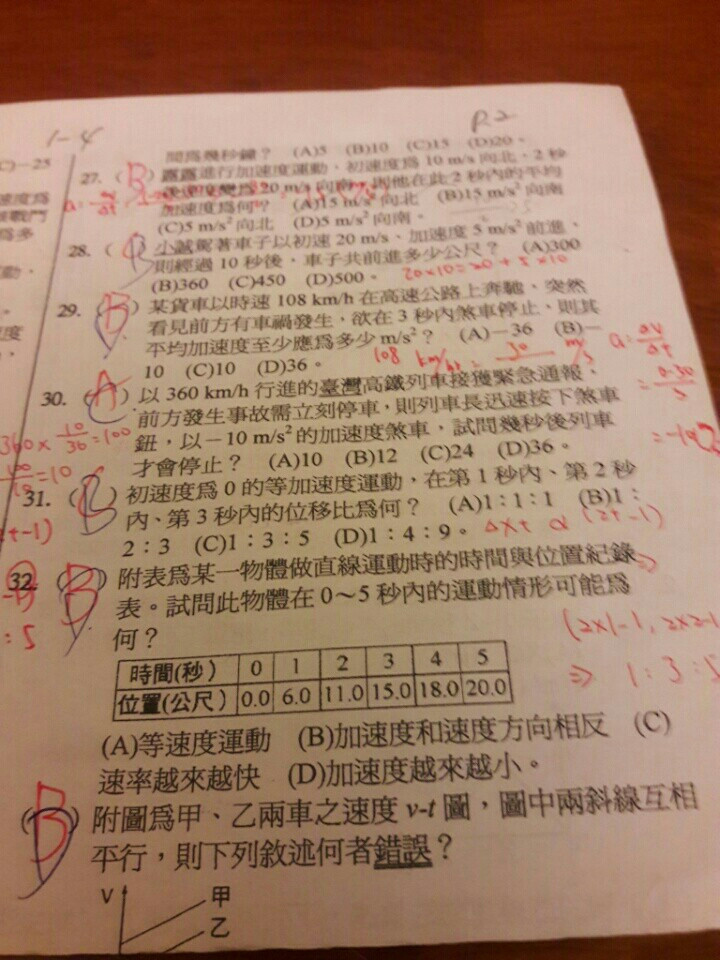 1-4
P.2
C)-25
間為幾秒鐘？ (A)5 (B)10 (C)15 (D)20。
27. (B) 露露進行加速度運動，初速度為 10 m/s 向北，2 秒
後速度變為 20 m/s 向南，則他在此 2 秒內的平均
加速度為何？ (A)15 m/s² 向北 (B)15 m/s² 向南
(C)5 m/s² 向北 (D)5 m/s² 向南。
28. ( ) 小誠駕著車子以初速 20 m/s、加速度 5 m/s² 前進，
則經過 10 秒後，車子共前進多少公尺？ (A)300
(B)360 (C)450 (D)500。
29. (B) 某貨車以時速 108 km/h 在高速公路上奔馳，突然
看見前方有車禍發生，欲在 3 秒內煞車停止，則其
平均加速度至少應為多少 m/s²？ (A)－36 (B)－
10 (C)10 (D)36。
30. (A) 以 360 km/h 行進的臺灣高鐵列車接獲緊急通報，
前方發生事故需立刻停車，則列車長迅速按下煞車
鈕，以－10 m/s² 的加速度煞車，試問幾秒後列車
才會停止？ (A)10 (B)12 (C)24 (D)36。
360×10/36=100
31. ( ) 初速度為 0 的等加速度運動，在第 1 秒內、第 2 秒
內、第 3 秒內的位移比為何？ (A)1：1：1 (B)1：
2：3 (C)1：3：5 (D)1：4：9。
32. (B) 附表為某一物體做直線運動時的時間與位置紀錄
表。試問此物體在 0～5 秒內的運動情形可能為
何？
⇒ 1：3：5
時間(秒) 0 1 2 3 4 5
位置(公尺) 0.0 6.0 11.0 15.0 18.0 20.0
(A)等速度運動 (B)加速度和速度方向相反 (C)
速率越來越快 (D)加速度越來越小。
(B) 附圖為甲、乙兩車之速度 v-t 圖，圖中兩斜線互相
平行，則下列敘述何者錯誤？
V
甲
乙